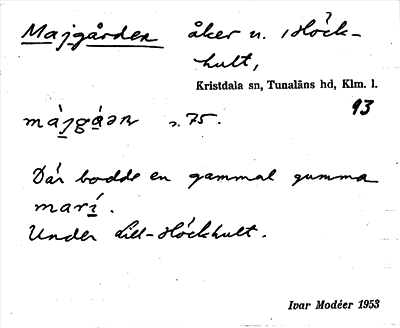 Majgården åker u. Höck-
hult,
Kristdala sn, Tunaläns hd, Klm. l.
93
májgá̱ən s. 75.
Där bodde en gammal gumma
marí̱.
Under Lill-Höckhult.
Ivar Modéer 1953